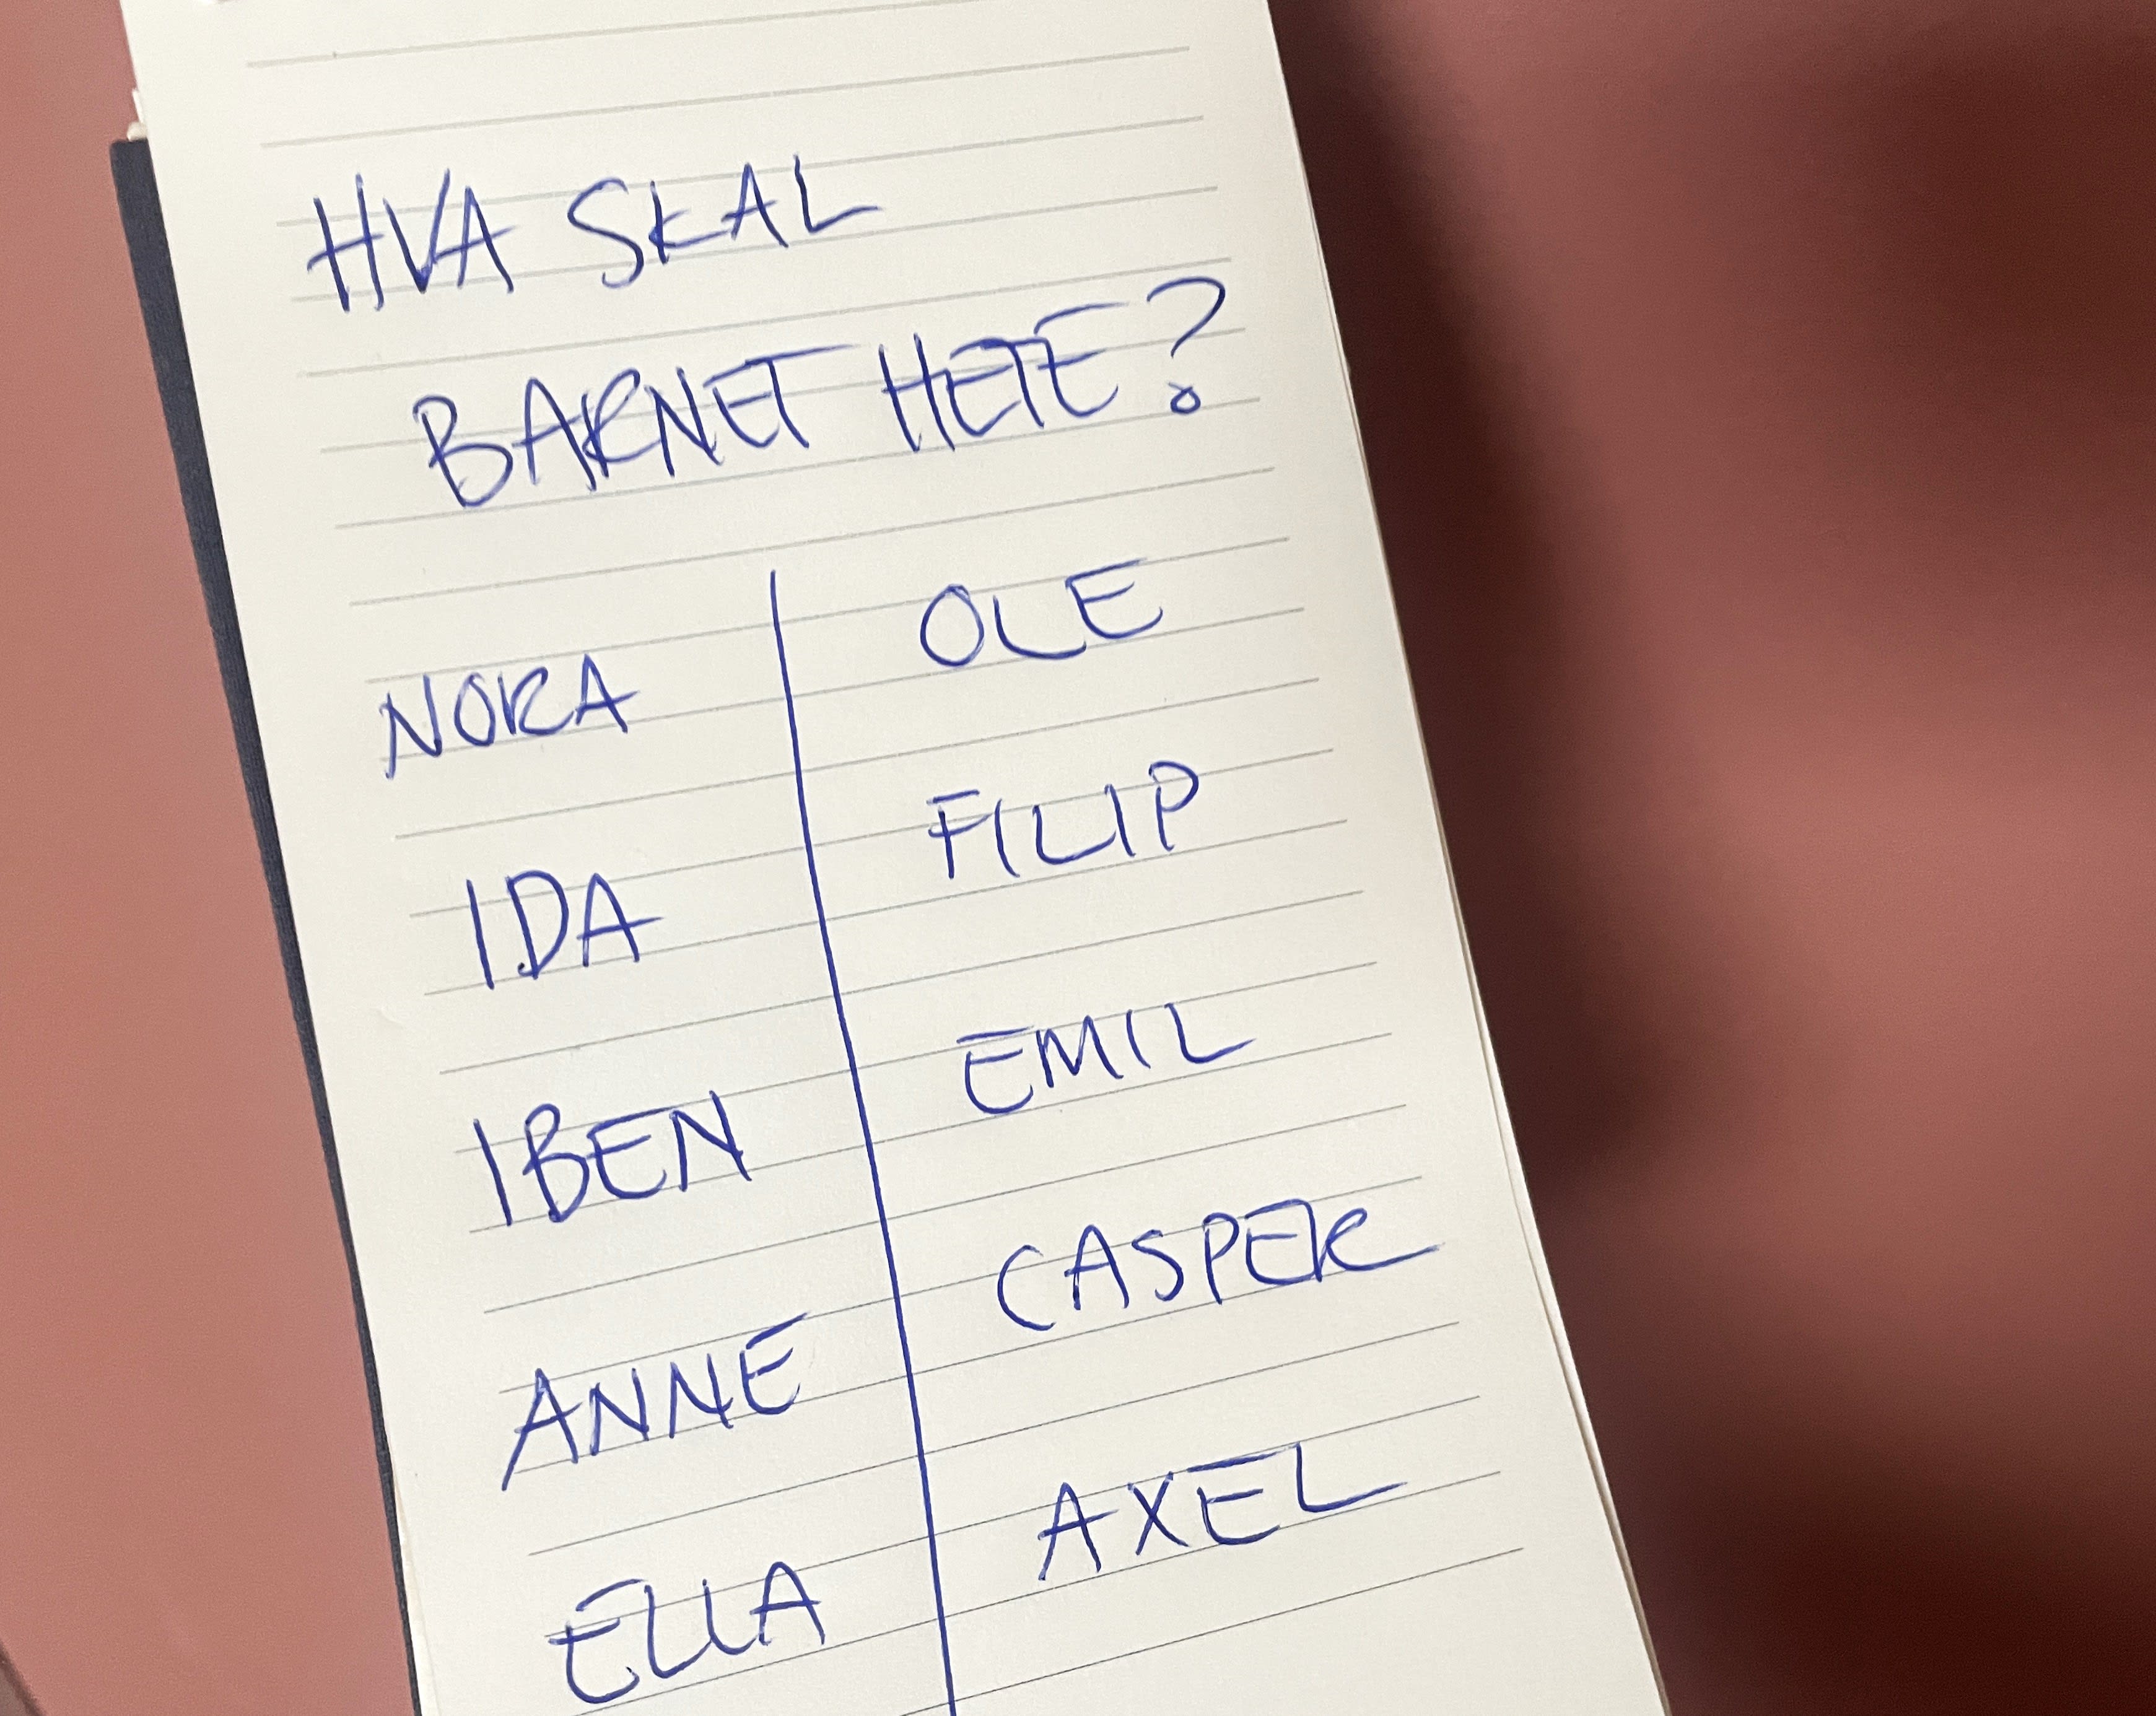 HVA SKAL
BARNET HETE?
NORA
IDA
IBEN
ANNE
ELLA
OLE
FILIP
EMIL
CASPER
AXEL